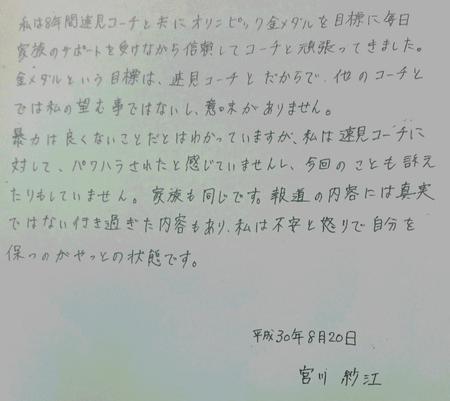 私は8年間速見コーチと共にオリンピック金メダルを目標に毎日
家族のサポートを受けながら信頼してコーチと頑張ってきました。
金メダルという目標は、速見コーチとだからで、他のコーチと
では私の望む事ではないし、意味がありません。
暴力は良くないことだとはわかっていますが、私は速見コーチに
対して、パワハラされたと感じていませんし、今回のことも訴え
たりもしていません。家族も同じです。報道の内容には真実
ではない行き過ぎた内容もあり、私は不安と怒りで自分を
保つのがやっとの状態です。
平成30年8月20日
宮川 紗江